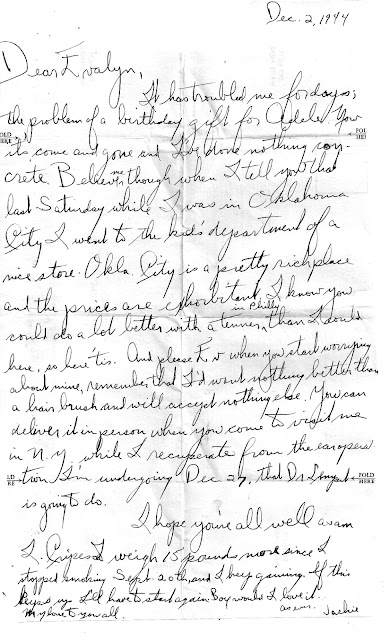 Dec. 2, 1944
Dear Evalyn,
It has troubled me for days;
the problem of a birthday gift for Adele. Now
its come and gone and I've done nothing con-
crete. Believe me though when I tell you that
last Saturday while I was in Oklahoma
City I went to the kid's department of a
nice store. Okla. City is a pretty rich place
and the prices are exhorbitant. I know you
could do a lot better with a tenner in Philly than I could
here, so here tis. And please Ev when you start worrying
about mine, remember that I'd want nothing better than
a hair brush and will accept nothing else. You can
deliver it in person when you come to visit me
in N.Y. while I recuperate from the ear opera-
tion I'm undergoing Dec 27, that Dr.
is going to do.
I hope you're all well as am
I. Cripes I weigh 15 pounds more since I
stopped smoking Sept. 20th, and I keep gaining. If this
keeps up I'll have to start again. Boy would I love it.
My love to you all. as ever, Jackie
FOLD
HERE
FOL
HE
LD
RE
FOLD
HERE